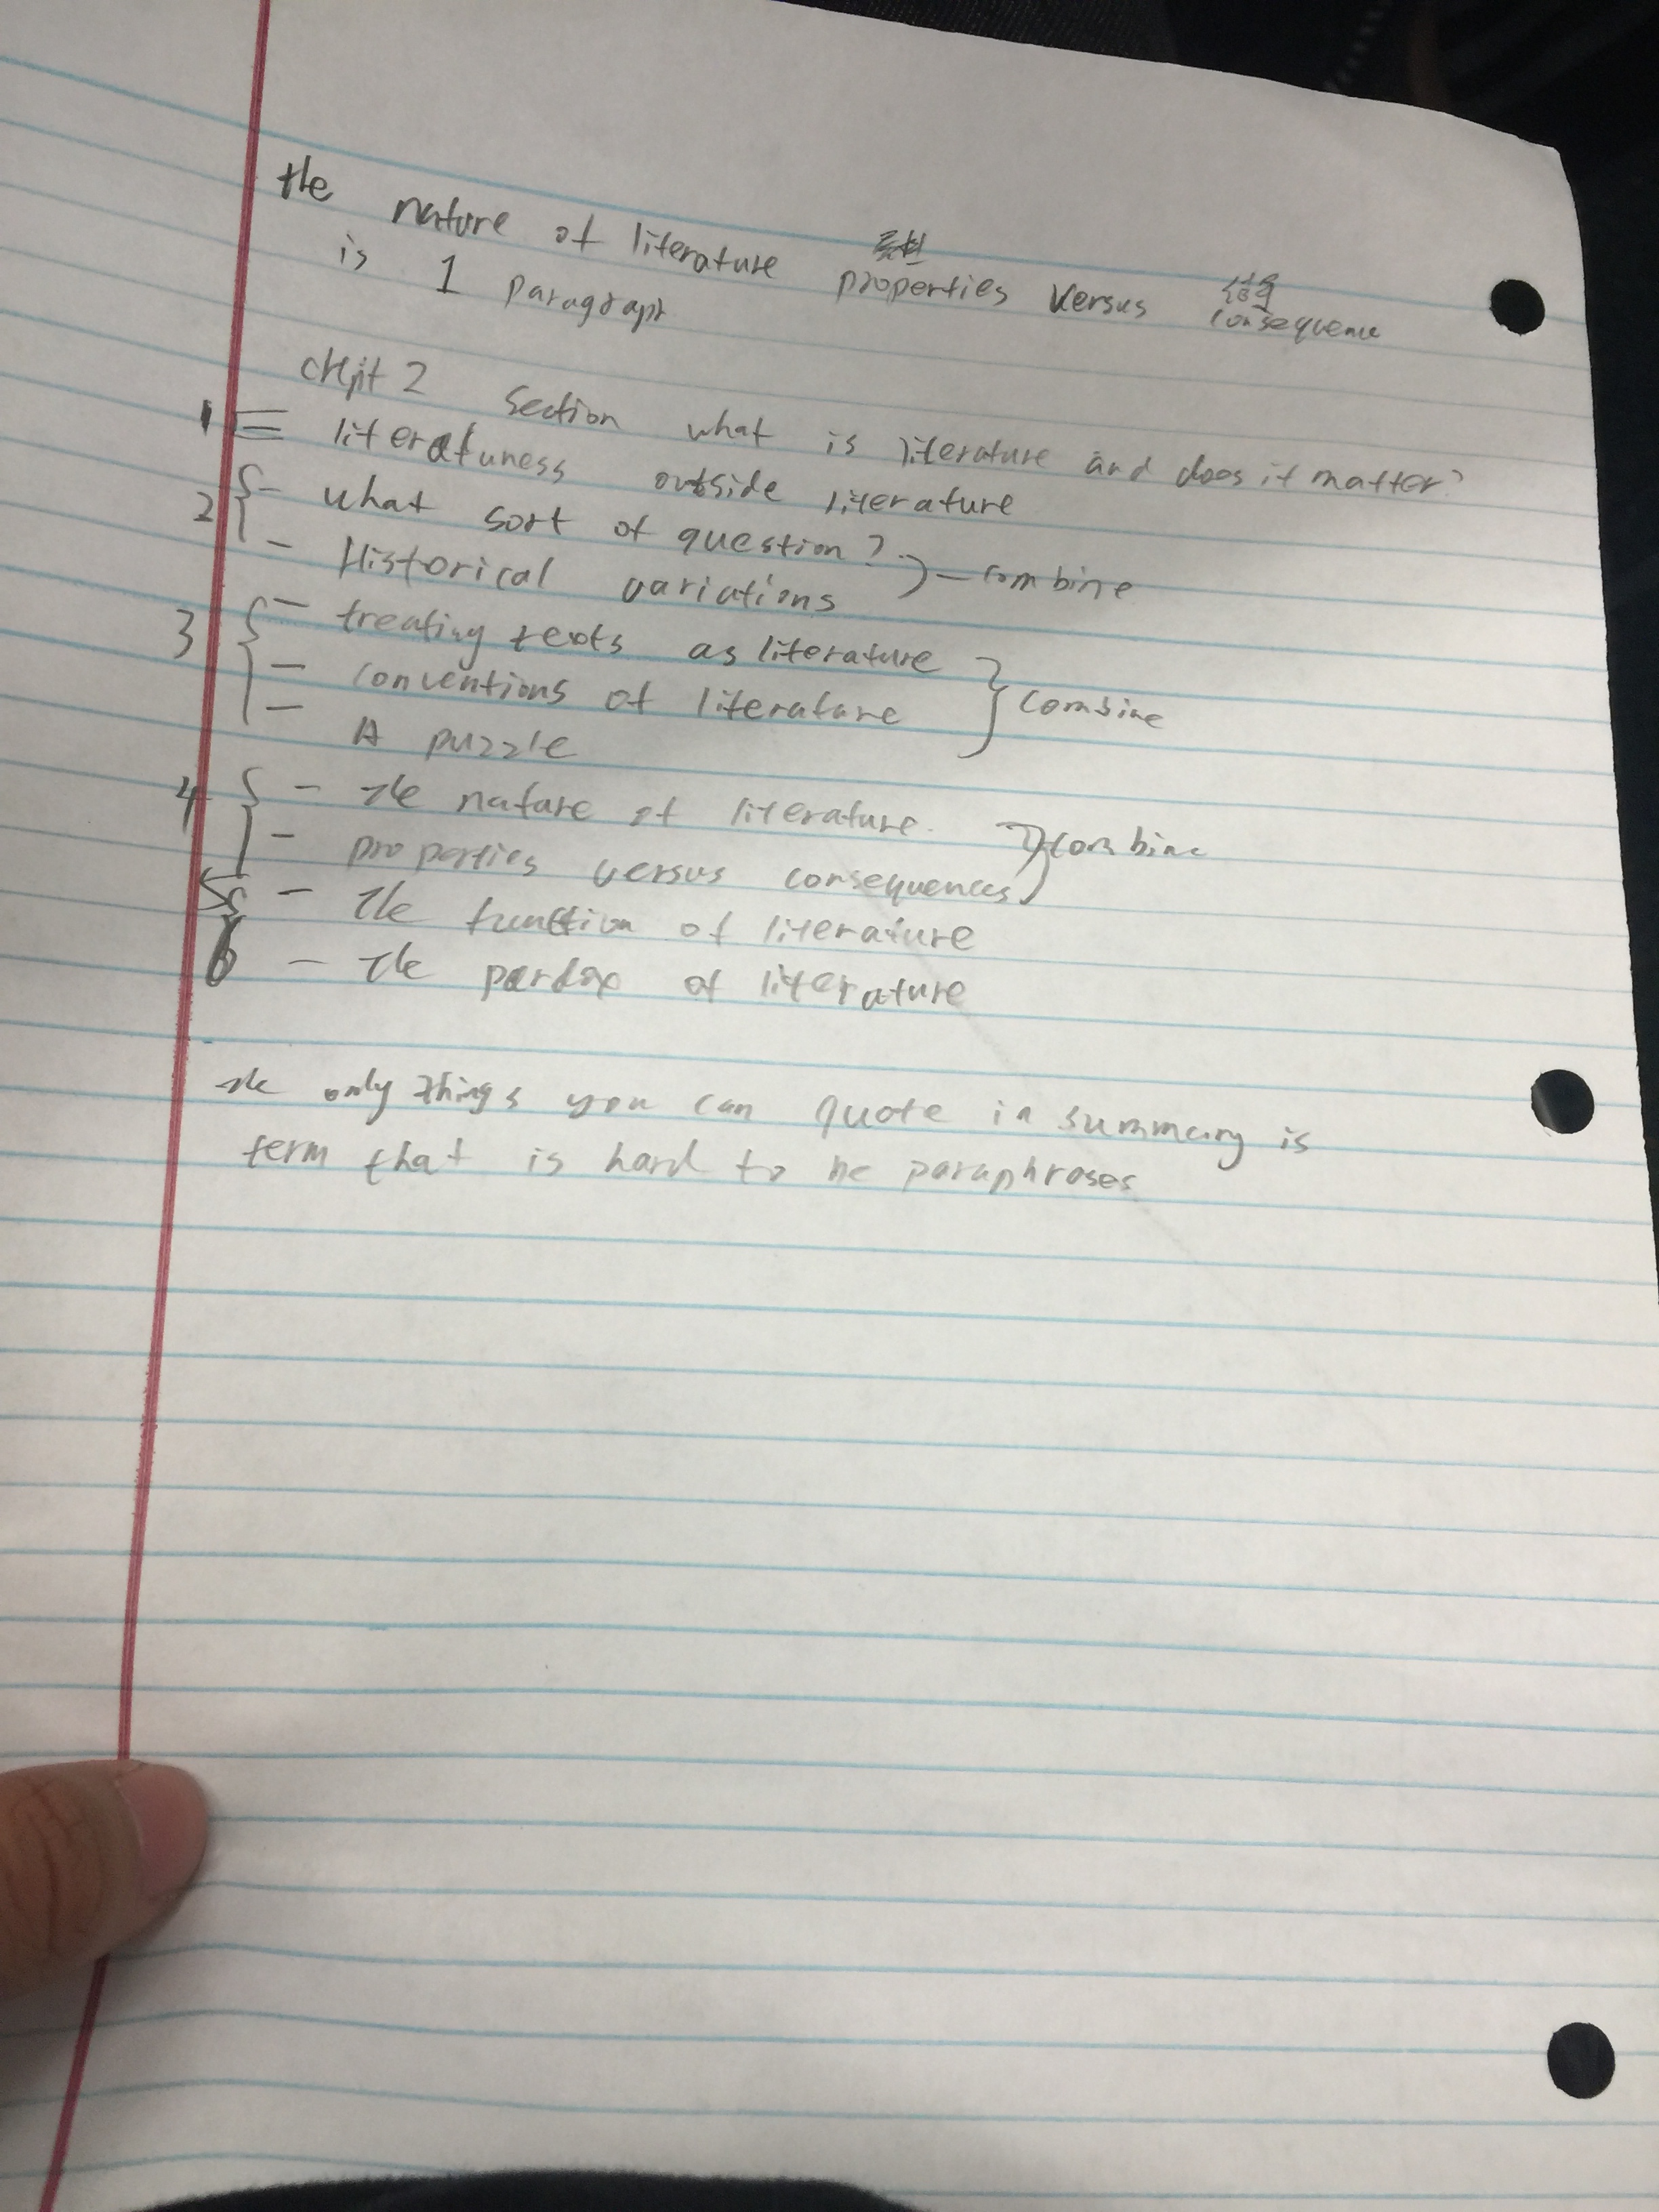 the nature of literature properties versus consequence
is 1 paragraph
chpt 2 section what is literature and does it matter?
1 literatuness outside literature
2 - what sort of question?
- Historical variations - combine
3 - treating texts as literature
- conventions of literature combine
- A puzzle
4 - The nature of literature. combine
- properties versus consequences
5 - The function of literature
6 - The pardox of literature
The only things you can quote in summary is
term that is hard to be paraphrases